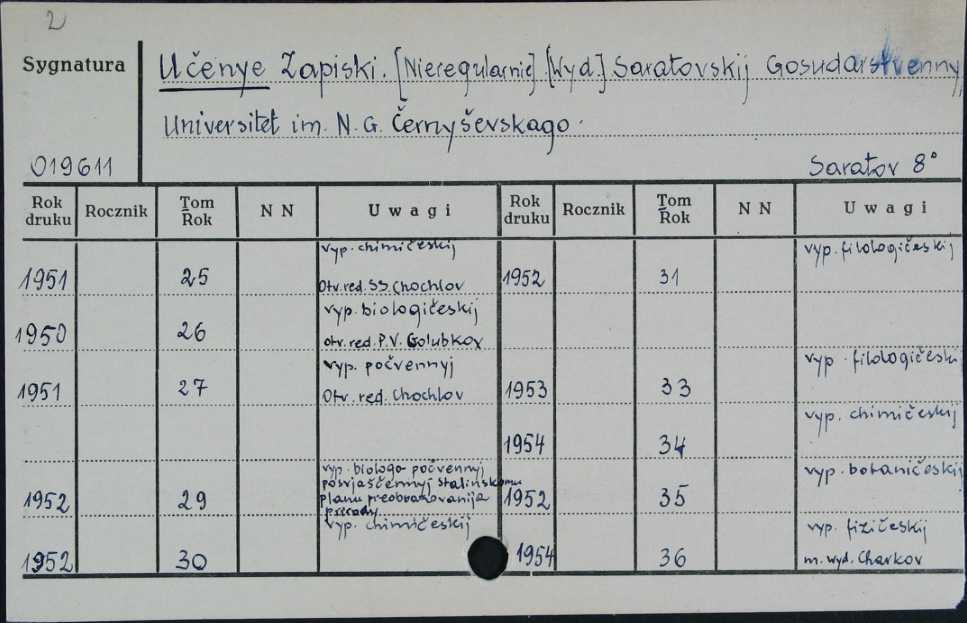 2
Sygnatura
Učenye Zapiski. [Nieregularnie]. [Wyd.] Saratovskij Gosudarstvennyj
Universitet im. N. G. Černyševskago.
019611
Saratov 8°
Rok druku Rocznik Tom Rok N N Uwagi Rok druku Rocznik Tom Rok N N Uwagi
1951 25 vyp. chimičeskij
Otv. red. S.S. Chochlov
1952 31 vyp. filologičeskij
1950 26 vyp. biologičeskij
otv. red. P.V. Golubkov
1951 27 vyp. počvennyj
Otv. red. Chochlov
1953 33 vyp. filologičeskij
1954 34 vyp. chimičeskij
1952 29 vyp. biologo počvennyj
posvjaščennyj stalinskomu
planu preobrazovanija
prirody
1952 35 vyp. botaničeskij
1952 30 vyp. chimičeskij
1954 36 vyp. fizičeskij
m. wyd. Charkov